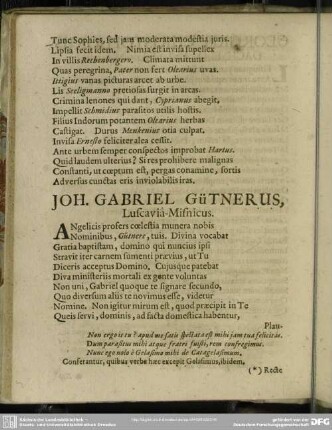 Tunc Sophies, sed jam moderata modestia juris.
Lipsia fecit idem. Nimia est invisa supellex
In villis Rechenbergero. Climata mittunt
Quas peregrina, Pater non fert Olearius uvas.
Ittigius vanas picturas arcet ab urbe.
Lis Seeligmanno pretiosas surgit in arcas.
Crimina lenones qui dant, Cyprianus abegit,
Impellit Schmidius parasitos utilis hostis.
Fisus Indorum potantem Olearius herbas
Castigat. Durus Menkenius otia culpat.
Invisa Ernesto feliciter alea cessit.
Ante urbem semper conspectos improbat Hartus.
Quid laudem ulterius? Si res prohibere malignas
Constanti, ut cœptum est, pergas conamine, fortis
Adversus cunctas eris inviolabilis iras.
JOH. GABRIEL GüTNERUS,
Luscaviâ-Misnicus.
ANgelicis profers cœlestia munera nobis
Nominibus, Gütnere, tuis. Divina vocabat
Gratia baptistam, domino qui nuncius ipsi
Stravit iter carnem sumenti prævius, ut Tu
Diceris acceptus Domino, Cujusque patebat
Diva ministeriis mortali ex gente voluntas
Non uni, Gabriel quoque te signare secundo,
Quo diversum aliis te novimus esse, videtur
Nomine. Non igitur mirum est, quod præcipit in Te
Queis servi, dominis, ad facta domestica habentur,
Plau-
Non ergo is tu? apud me satis spectata est mihi jam tua felicitas.
Dum parasitus mihi atque frater fuisti, rem confregimus.
Nunc ego nolo è Gelasimo mihi fie Catagelasimum,
Conferantur, quibus verbis hæc excepit Gelasimus, ibidem,
(*) Recte